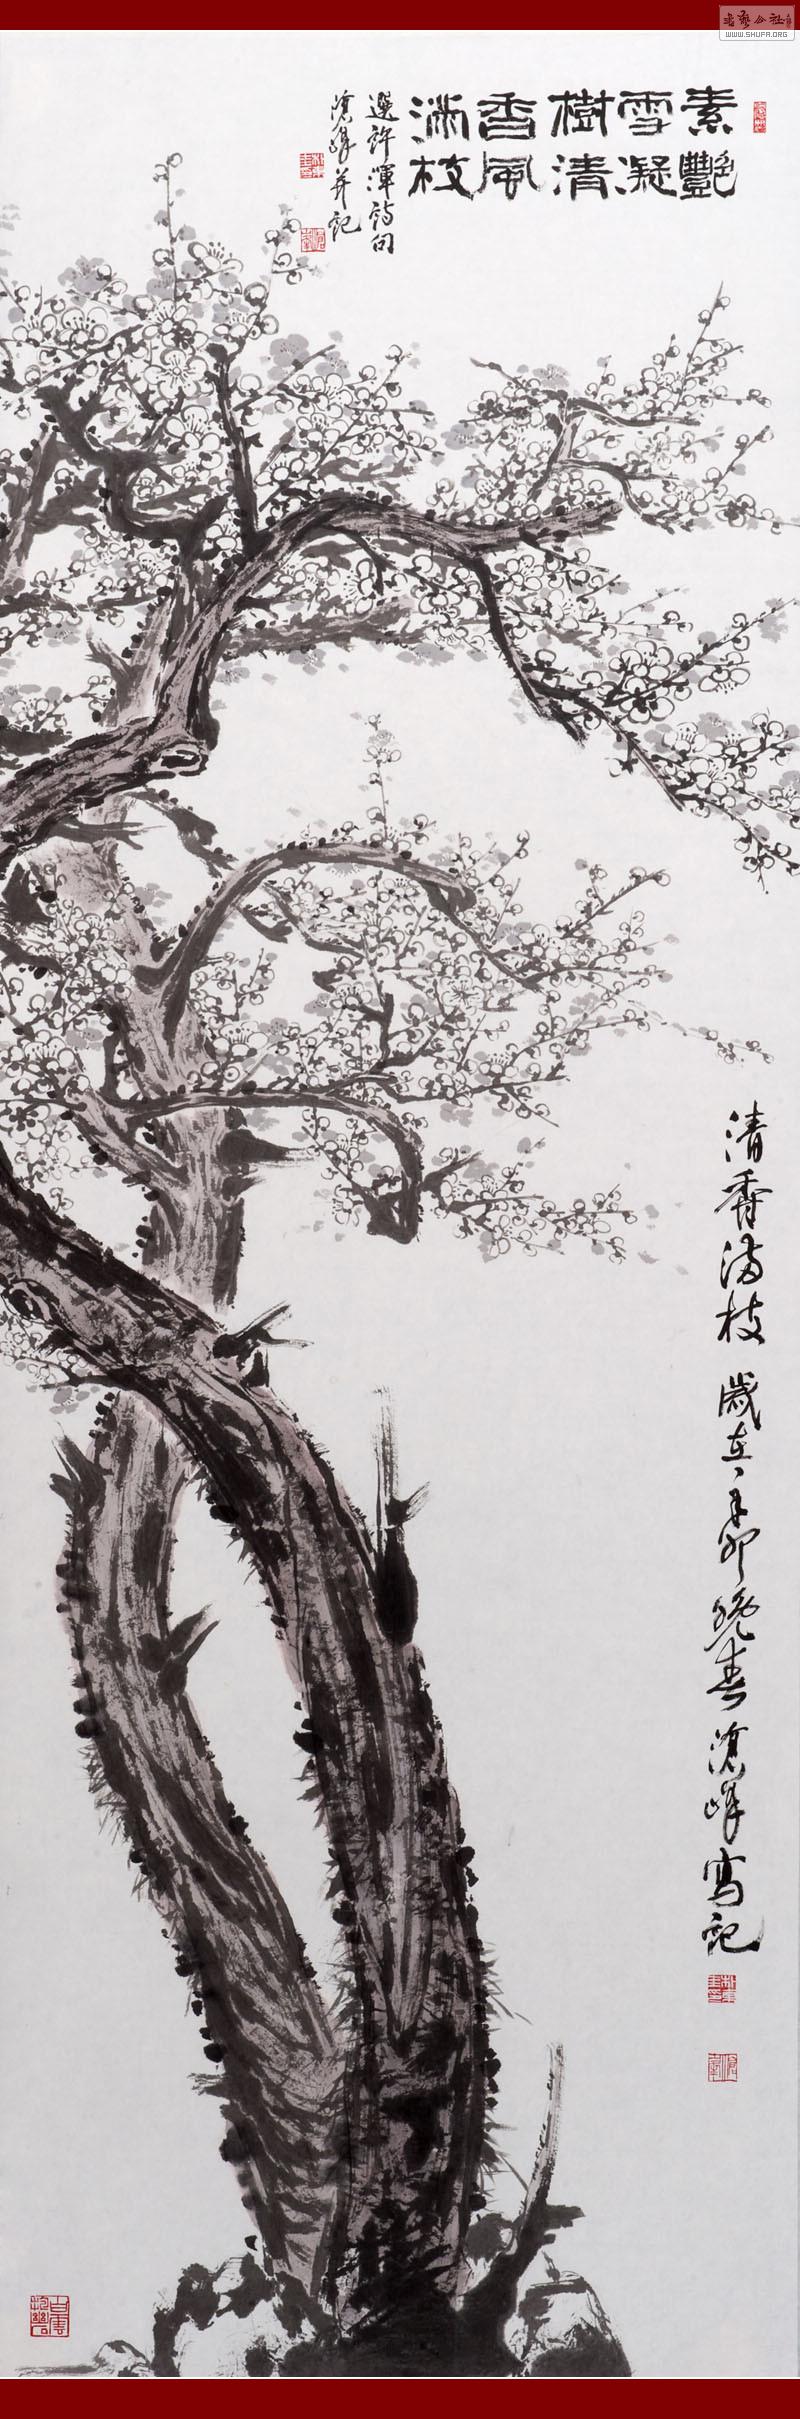 素艷
雪凝
樹清
香風
滿枝
選許渾詩句
滄峰并記
清香滿枝 歲在辛卯晚春滄峰寫記
白雲
書藝公社
WWW.SHUFA.ORG